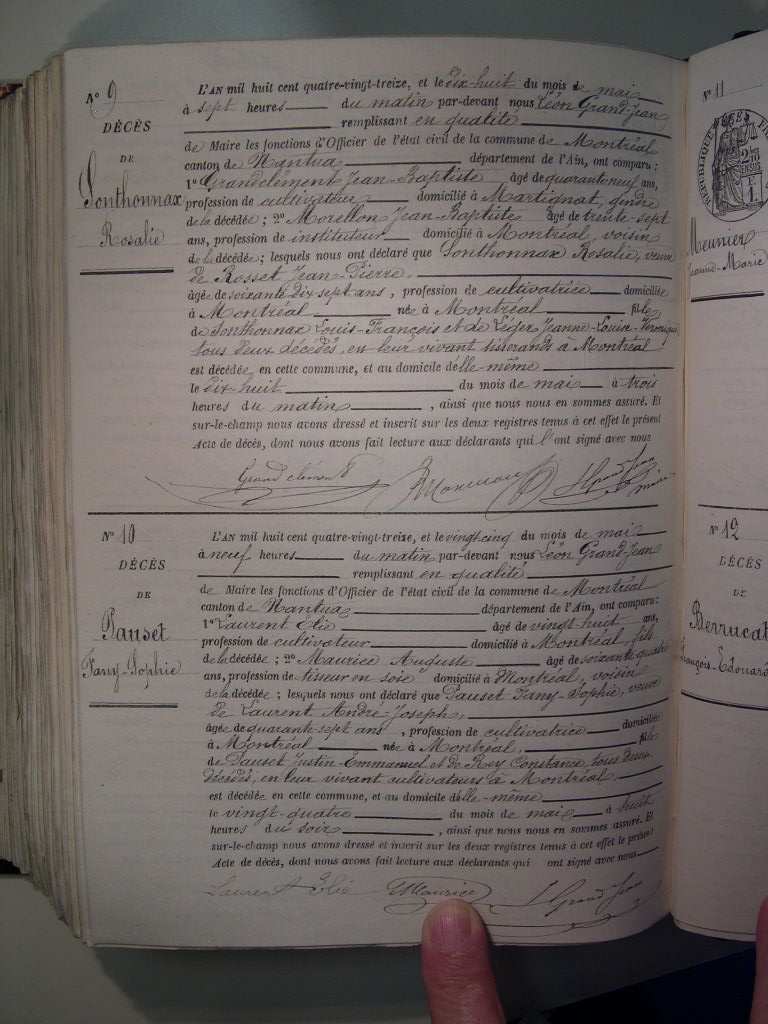 N° 9
DÉCÈS
DE
Sonthonnax
Rosalie
L'AN mil huit cent quatre-vingt-treize, et le dix-huit du mois de mai
à sept heures du matin par-devant nous Léon Grand-Jean
remplissant en qualité
de Maire les fonctions d'Officier de l'état civil de la commune de Montréal
canton de Nantua département de l'Ain, ont comparu :
1° Grandclément Jean-Baptiste âgé de quarante neuf ans,
profession de cultivateur domicilié à Martignat, gendre
de la décédée ; 2° Morellon Jean-Baptiste âgé de trente-sept
ans, profession de instituteur domicilié à Montréal, voisin
de la décédée ; lesquels nous ont déclaré que Sonthonnax Rosalie, veuve
de Rosset Jean-Pierre
âgée de soixante dix sept ans, profession de cultivatrice domiciliée
à Montréal née à Montréal fille
de Sonthonnax Louis-François et de Léger Jeanne-Louise-Véronique
tous deux décédés, en leur vivant tisserands à Montréal
est décédée en cette commune, et au domicile d'elle-même
le dix-huit du mois de mai à trois
heures du matin, ainsi que nous nous en sommes assuré. Et
sur-le-champ nous avons dressé et inscrit sur les deux registres tenus à cet effet le présent
Acte de décès, dont nous avons fait lecture aux déclarants qui l'ont signé avec nous
Grandclément Morellon L Grand Jean
maire
N° 10
DÉCÈS
DE
Pauset
Fany-Sophie
L'AN mil huit cent quatre-vingt-treize, et le vingt-cinq du mois de mai
à neuf heures du matin par-devant nous Léon Grand-Jean
remplissant en qualité
de Maire les fonctions d'Officier de l'état civil de la commune de Montréal
canton de Nantua département de l'Ain, ont comparu :
1° Laurent Elie âgé de vingt-huit ans,
profession de cultivateur domicilié à Montréal fils
de la décédée ; 2° Maurice Auguste âgé de soixante quatre
ans, profession de tisseur en soie domicilié à Montréal, voisin
de la décédée ; lesquels nous ont déclaré que Pauset Fany-Sophie, veuve
de Laurent André-Joseph
âgée de quarante-sept ans, profession de cultivatrice domiciliée
à Montréal née à Montréal, fille
de Pauset Justin-Emmanuel et de Rey Constance, tous deux
décédés, en leur vivant cultivateurs à Montréal
est décédée en cette commune, et au domicile d'elle-même
le vingt-quatre du mois de mai à huit
heures du soir, ainsi que nous nous en sommes assuré. Et
sur-le-champ nous avons dressé et inscrit sur les deux registres tenus à cet effet le présent
Acte de décès, dont nous avons fait lecture aux déclarants qui ont signé avec nous
Laurent Elie Maurice L Grand Jean
N° 11
RÉPUBLIQUE
Meunier
Jeanne-Marie
N° 12
DÉCÈS
DE
Berrucat
François-Edouard